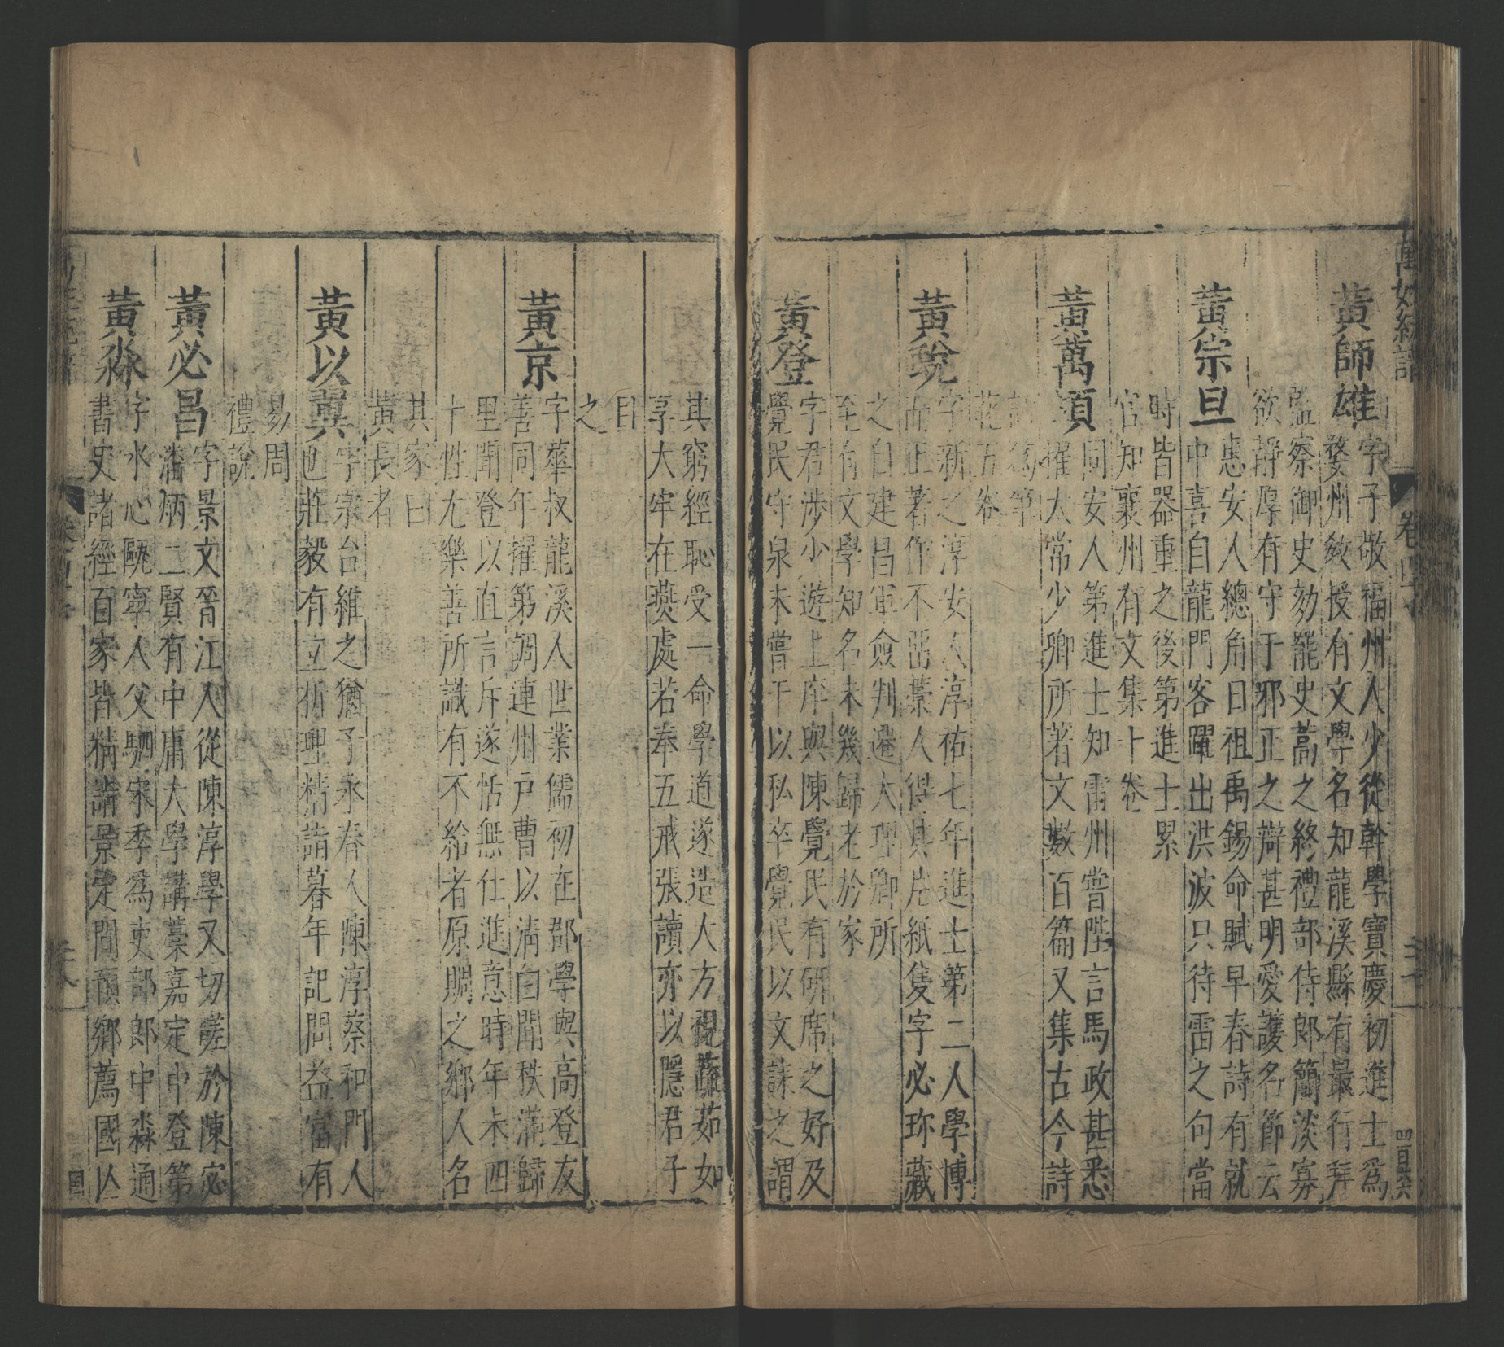 黃師雄
字子敬福州人少從幹學寶慶初進士爲
婺州敎授有文學名知龍溪縣有最行拜
監察御史劾罷史嵩之終禮部侍郎簡淡寡
欲靜厚有守于邪正之辯甚明愛護名節云
黃宗旦
惠安人總角日祖禹錫命賦早春詩有就
中喜自龍門客躍出洪波只待雷之句當
時皆器重之後第進士累
官知襄州有文集十卷
黃萬頃
同安人第進士知雷州嘗陛言馬政甚悉
擢太常少卿所著文數百篇又集古今詩
話爲筆
苑五卷
黃銳
字新之淳安人淳祐七年進士第二人學博
而正著作不留藁人得其片紙隻字必珎藏
之自建昌軍僉判遷大理卿所
至有文學知名未幾歸老於家
黃登
字君涉少遊上庠與陳覺民有研席之好及
覺民守泉未嘗干以私卒覺民以文誄之謂
其窮經恥受一命學道遂造人方視蔬茹如
享大牢在䙝處若奉五戒張讀亦以隱君子
目
之
黃京
字華叔龍溪人世業儒初在郡學與高登友
善同年擢第調連州戶曹以淸白聞秩滿歸
里聞登以直言斥遂恬無仕進意時年未四
十性尤樂善所識有不給者原賙之鄉人名
其家曰
黃長者
黃以翼
字宗台維之猶子永春人陳淳蔡和門人
也莊毅有立析理精詣暮年記問益富有
易周
禮說
黃必昌
字景文晉江人從陳淳學又切磋於陳宓
潘柄二賢有中庸大學講藁嘉定中登第
黃淼
字水心甌寧人父駟宋季爲吏部郎中淼通
書史諸經百家皆精詣景定間領鄉薦國亾
萬姓統譜
卷四十
四百六六